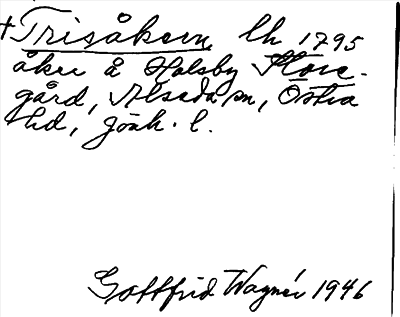 †Trisåkern, lh 1795
åker å Holsby Store-
gård, Alseda sn, Östra
hd, Jönk. l.
Gottfrid Wagnér 1946